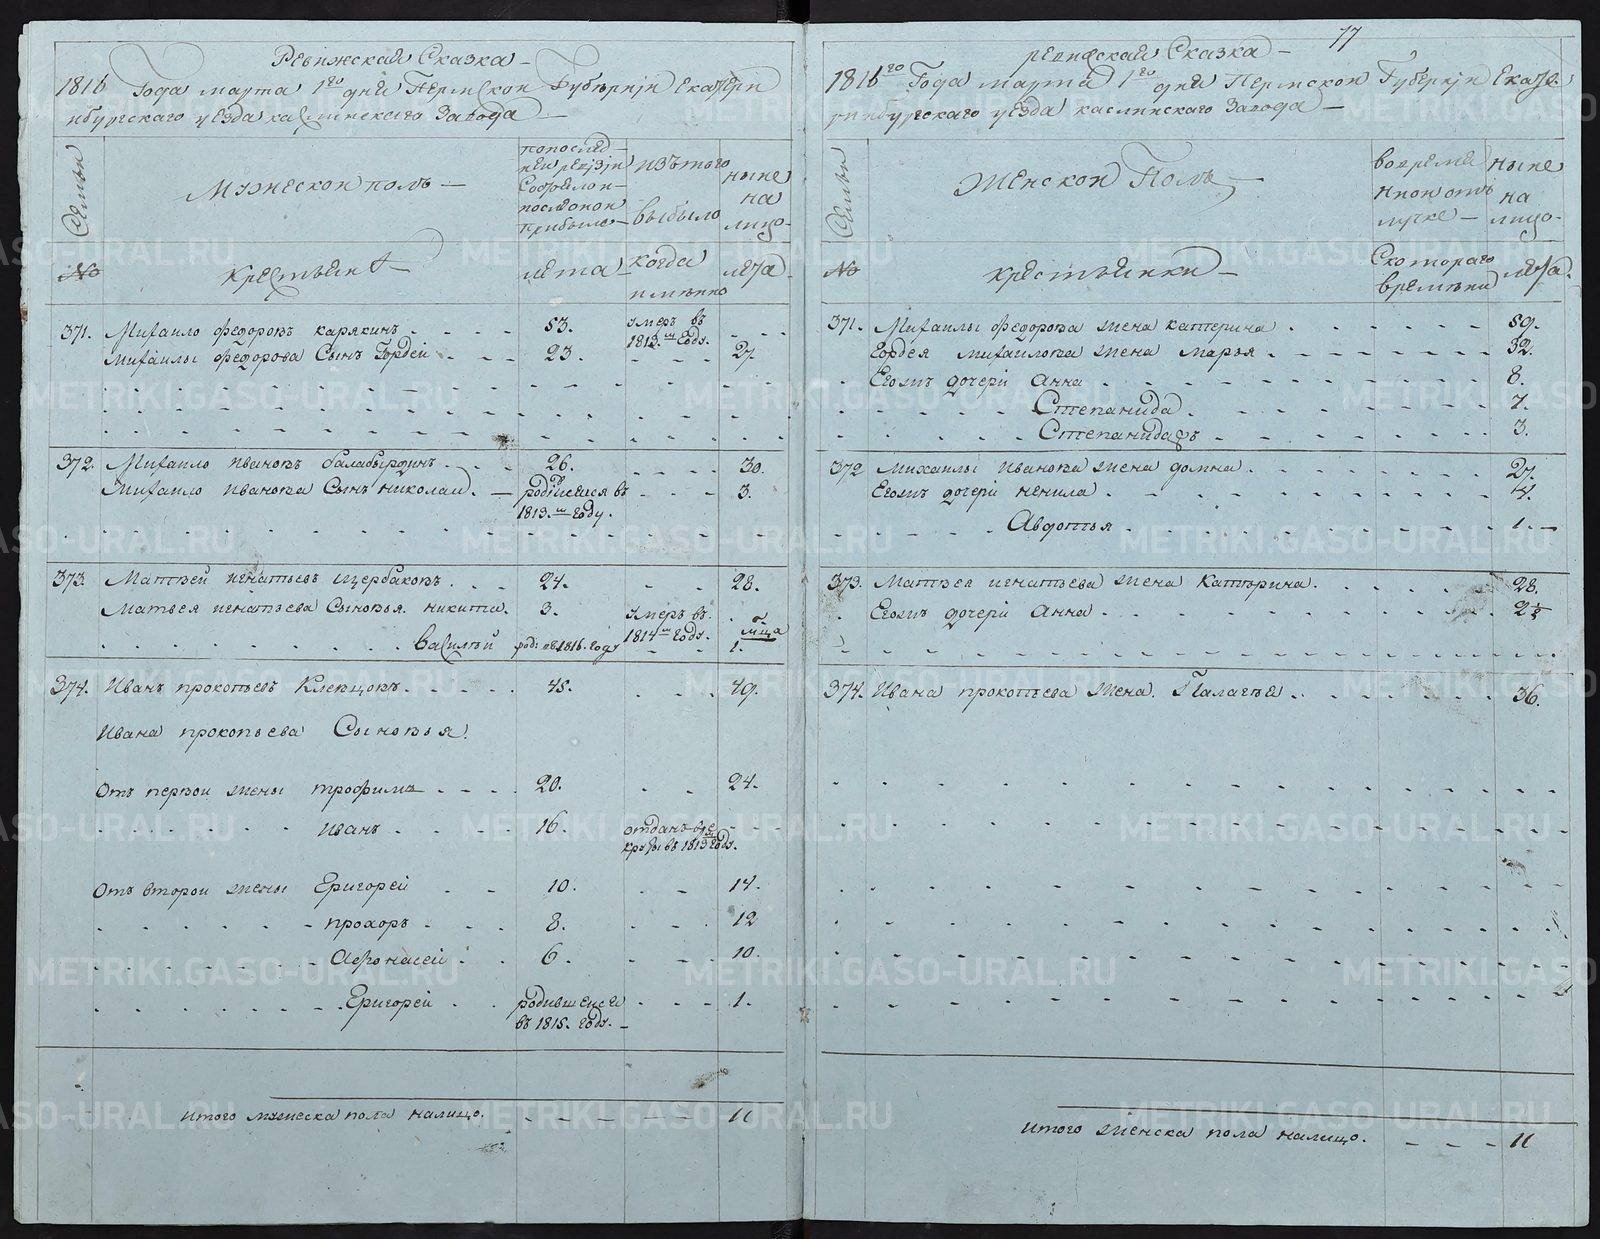 Ревижская Сказка
1816 Года марта 1го дня Пермской Губернiи Екатери
нбургского уезда каслинскаго Завода
Семьи
Мужеской полъ
попослед
ней ревiзiи
Состояло и
после оной
прибыло
изъ того
выбыло
ныне
на
лицо
№
Крестьяня
лета
когда
имянно
лета
371. Михайло федоровъ карякинъ 53. умеръ въ
1813.м Году.
Михайлы федорова Сынъ Гордей 23. 27
372. Михайло ивановъ балабырдинъ 26. 30.
Михайло иванова Сынъ николай родiвшейся въ 3.
1813.м Году.
373. Матвей игнатьевъ щербаковъ 24. 28.
Матвея игнатьева Сыновья никита. 3. умеръ въ
1814м Году.
мца
Василей родi: въ 1816. году 1.
374. Иванъ прокопьевъ Клепцовъ 45. 49.
Ивана прокопьева Сыновья.
Отъ первой жены трофимъ 20. 24.
иванъ 16. отданъ в ре
круты въ 1813м Году.
Отъ второй жены Григорей 10. 14.
прохоръ 8. 12
Афонасей 6. 10.
Григорей родившейся 1.
въ 1815. Году.
итого мужеска пола налицо. 11
77
ревижская Сказка
1816го Года марта 1го дня Пермской Губернiи Екате
ринбургскаго уезда каслинскаго Завода
Семьи
Женской Полъ
вовремя
нной отъ
лучке
ныне
на
лицо
№
крестьянки
Скотораго
времяни
лета.
371. Михайлы федорова жена катерина 59.
Гордея михайлова жена марья 32.
Егожъ дочери Анна 8.
Степанида. 7.
Степанидажъ 3.
372 Михайлы иванова жена домна 27.
Егожъ дочери ненила 4.
Авдотья 1.
373. Матвея игнатьева жена Катерина. 28.
Егожъ дочери Анна 2½
374. Ивана прокопьева жена Палагея 36.
итого женска пола налицо. 11
METRIKI.GASO-URAL.RU